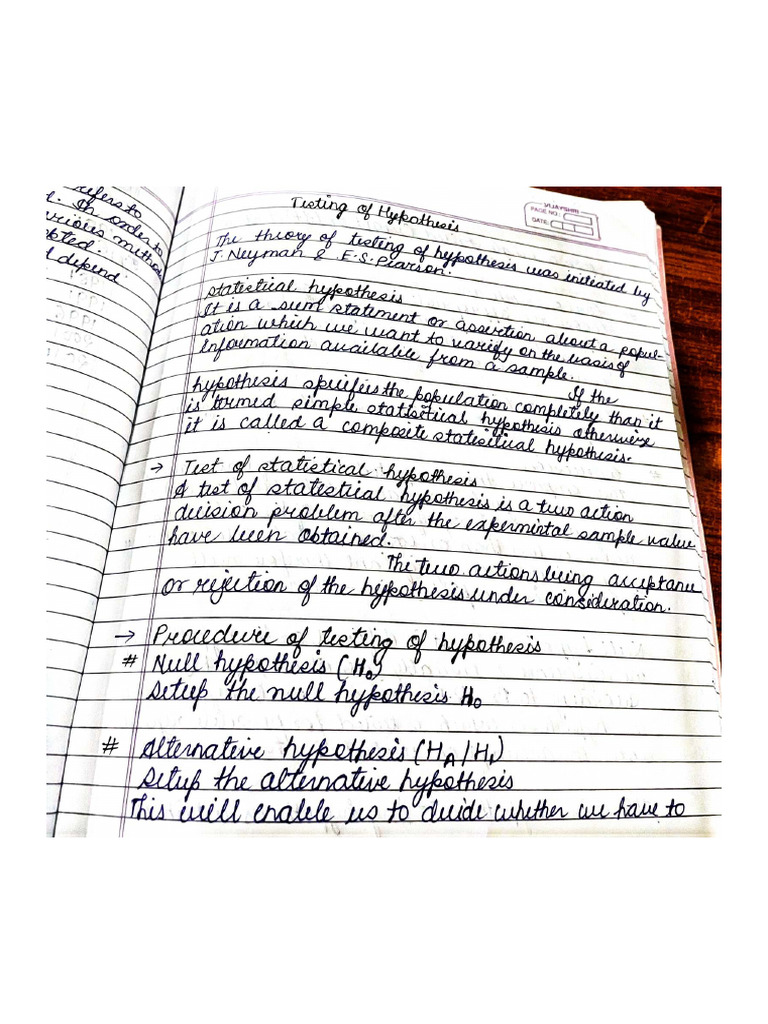 refers to
d. In order to
various method
pted.
d depend
VIJAYSHRI
PAGE NO.:
DATE:
Testing of Hypothesis
The theory of testing of hypothesis was initiated by
J. Neyman & E.S. Pearson.
Statistical hypothesis
It is a sum statement or assertion about a popul-
ation which we want to varify on the basis of
information available from a sample.
If the
hypothesis specifies the population completely than it
is termed simple statistical hypothesis otherwise
it is called a composite statistical hypothesis.
→ Test of statistical hypothesis
A test of statistical hypothesis is a two action
decision problem after the expermintal sample value
have been obtained.
The two actions being acceptance
or rejection of the hypothesis under consideration.
→ Procedure of testing of hypothesis
# Null hypothesis (H₀)
Setup the null hypothesis H₀
# Alternative hypothesis (H_A/H₁)
Setup the alternative hypothesis
This will enable us to decide whether we have to